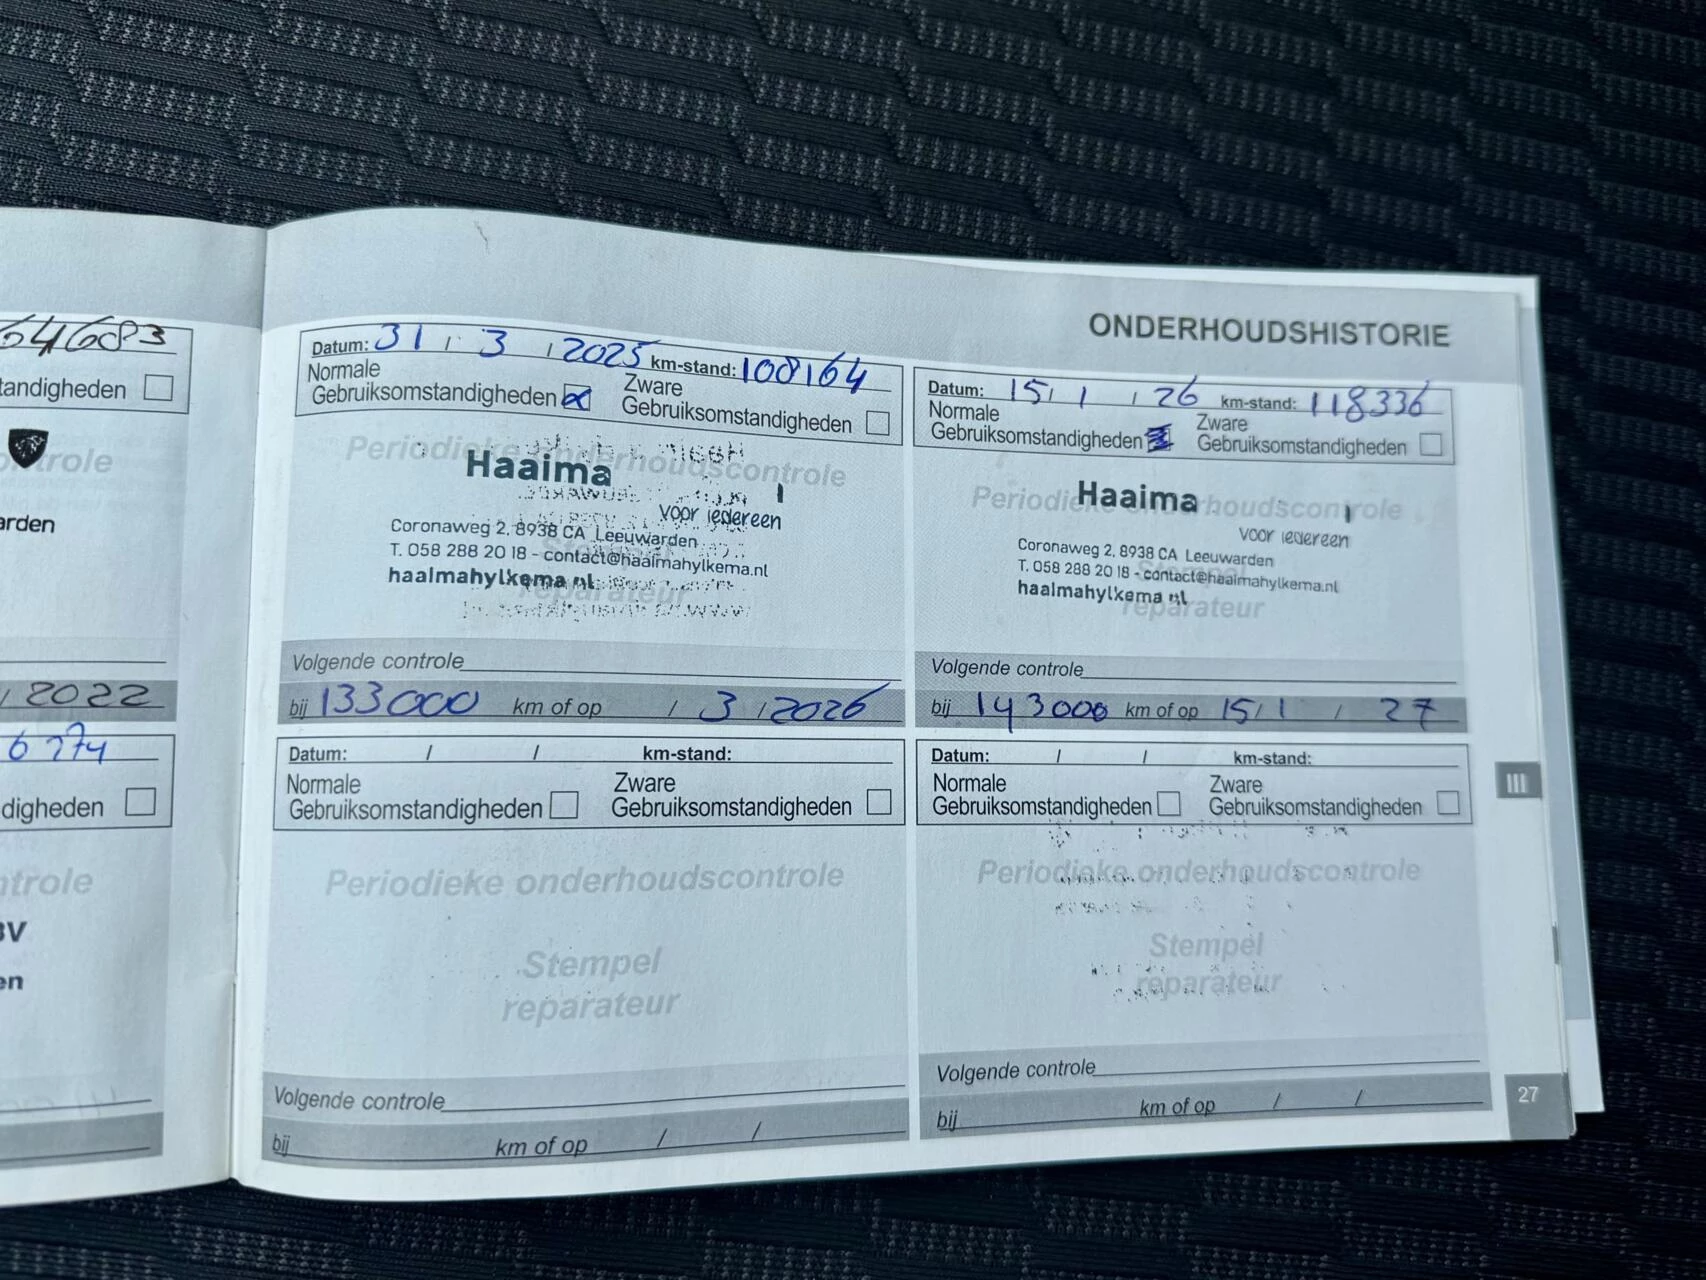 64683
tandigheden
ntrole
arden
2022
6274
digheden
ntrole
BV
en
ONDERHOUDSHISTORIE
Datum: 31 / 3 / 2025 km-stand: 108164
Normale Zware
Gebruiksomstandigheden Gebruiksomstandigheden
Periodieke onderhoudscontrole
Haaima
voor iedereen
Coronaweg 2, 8938 CA Leeuwarden
T. 058 288 20 18 - contact@haaimahylkema.nl
haaimahylkema.nl
Stempel
reparateur
Volgende controle
bij 133000 km of op / 3 / 2026
Datum: 15 / 1 / 26 km-stand: 118336
Normale Zware
Gebruiksomstandigheden Gebruiksomstandigheden
Periodieke onderhoudscontrole
Haaima
voor iedereen
Coronaweg 2, 8938 CA Leeuwarden
T. 058 288 20 18 - contact@haaimahylkema.nl
haaimahylkema.nl
Stempel
reparateur
Volgende controle
bij 143000 km of op 15 / 1 / 27
Datum: / / km-stand:
Normale Zware
Gebruiksomstandigheden Gebruiksomstandigheden
Periodieke onderhoudscontrole
Stempel
reparateur
Volgende controle
bij km of op / /
Datum: / / km-stand:
Normale Zware
Gebruiksomstandigheden Gebruiksomstandigheden
Periodieke onderhoudscontrole
Stempel
reparateur
Volgende controle
bij km of op / /
III
27